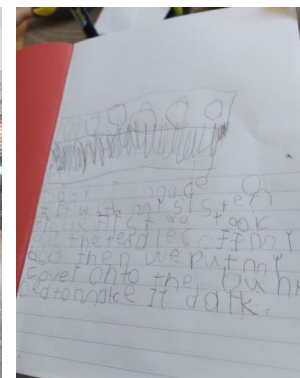 I made a
it with my sister
first we took
all the teddies of my
bed then we put my
cover onto the bunk
bed to make it dark.